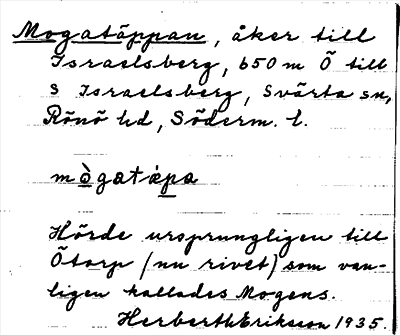 Mogatäppan, åker till
Israelsberg, 650 m Ö till
S Israelsberg, Svärta sn,
Rönö hd, Söderm. l.
mògatäpa
Hörde ursprungligen till
Ötorp (nu rivet) som van-
ligen kallades Mogens.
Herberth Erikson 1935.